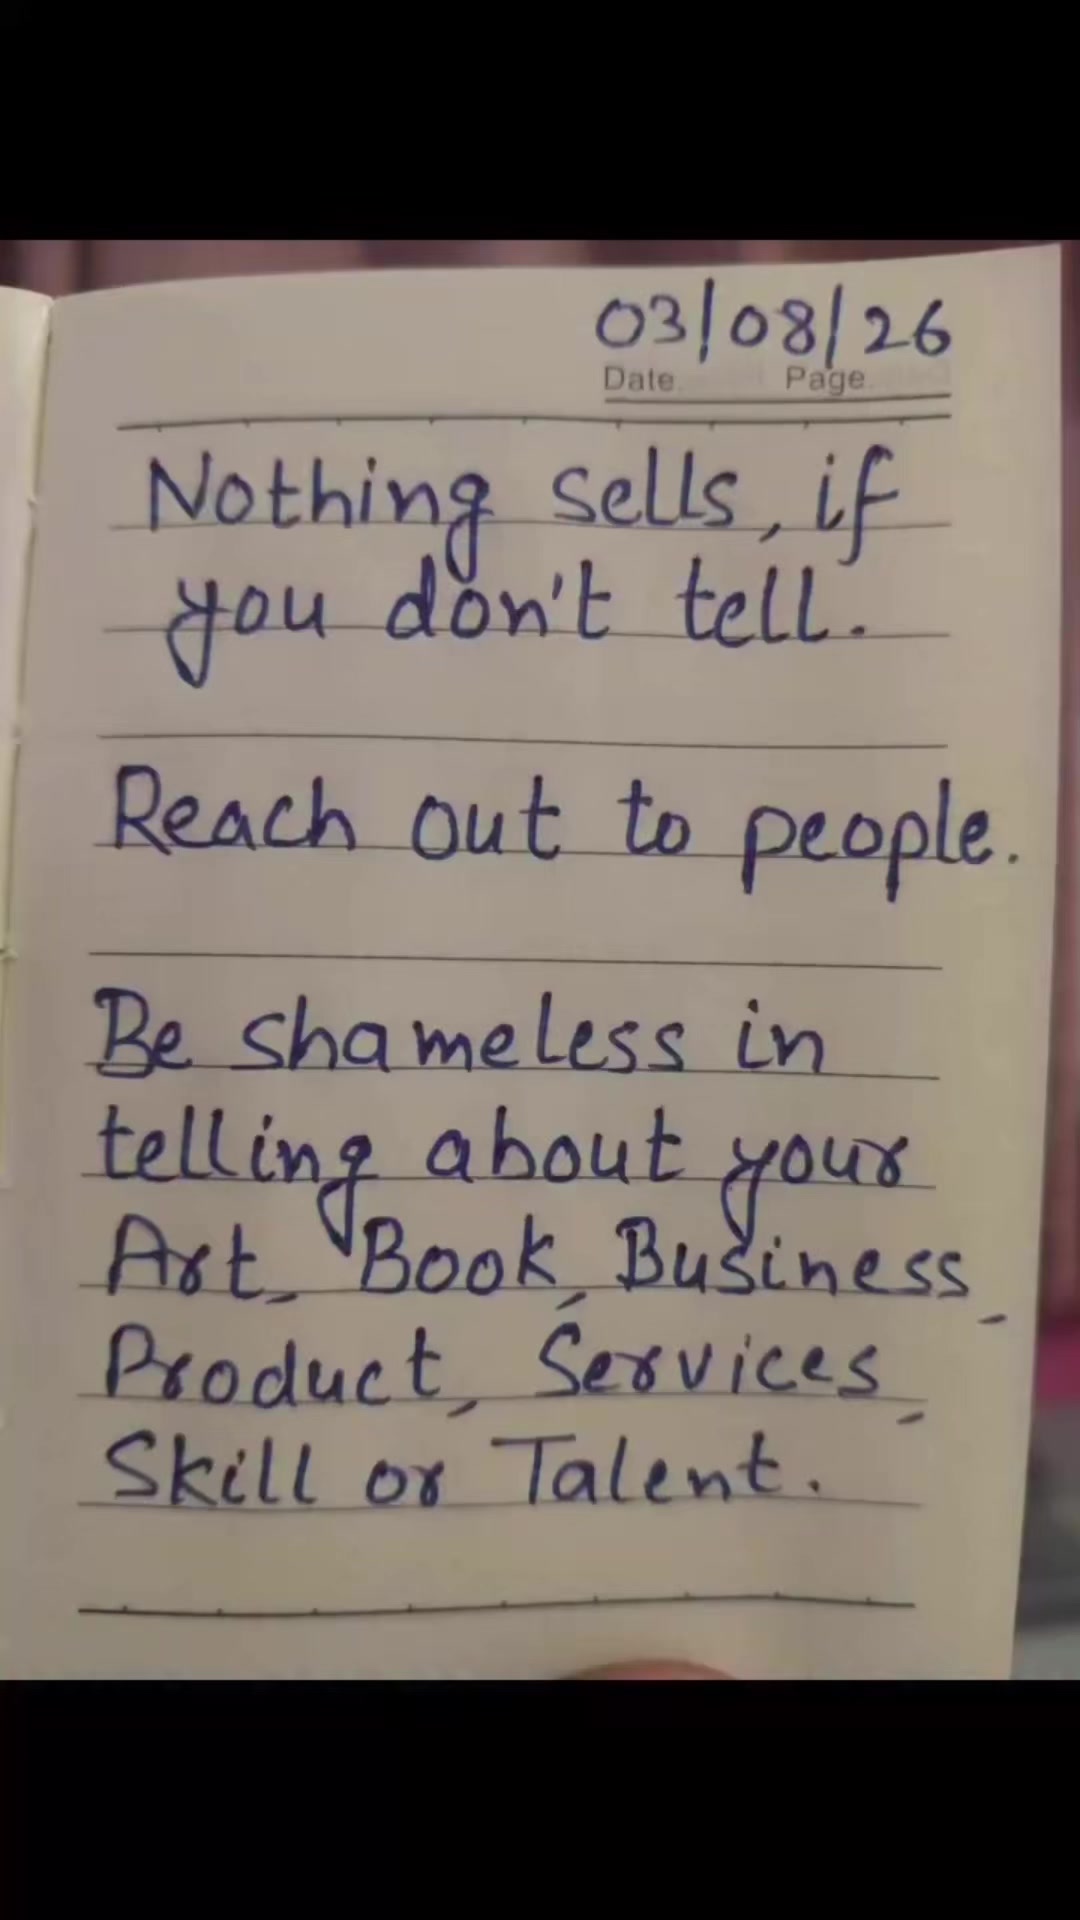 03/08/26
Date. Page.
Nothing sells, if
you don't tell.
Reach out to people.
Be shameless in
telling about your
Art, Book, Business,
Product, Services,
Skill or Talent.